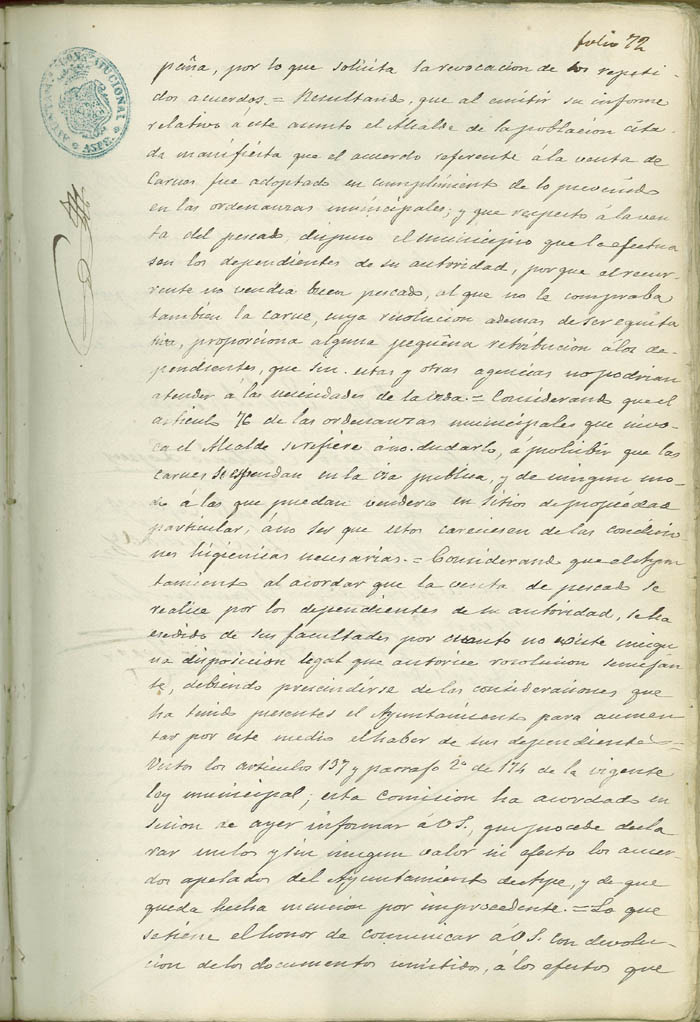 folio 72
AYUNTAMIENTO CONSTITUCIONAL
ASPE
paña, por lo que solicita la revocacion de los repeti-
dos acuerdos. = Resultando, que al emitir su informe
relativo á este asunto el Alcalde de la poblacion cita-
da manifiesta que el acuerdo referente á la venta de
Carnes fue adoptado en cumplimiento de lo prevenido
en las ordenanzas municipales; y que respecto á la ven-
ta del pescado, dispuso el municipio que la efectua
sen los dependientes de su autoridad, porque el recur-
rente no vendia buen pescado, al que no le compraba
tambien la carne, cuya resolucion ademas de ser equita
tiva, proporciona alguna pequeña retribucion álos de-
pendientes, que sin estas y otras agencias no podrian
atender á las necesidades de la vida. = Considerando que el
articulo 76 de las ordenanzas municipales que invo-
ca el Alcalde se refiere áno dudarlo, á prohibir que las
carnes se espendan en la via publica, y de ningun mo-
do á las que puedan venderse en sitios de propiedad
particular, áno ser que estos careciesen de las condicio-
nes higienicas necesarias. = Considerando que el Ayun
tamiento al acordar que la venta de pescado se
realice por los dependientes de su autoridad, se ha
esedido de sus facultades por cuanto no existe ningu
na disposicion legal que autorice resolucion semejan
te, debiendo prescindirse de las consideraciones que
ha tenido presentes el Ayuntamiento para aumen
tar por este medio el haber de sus dependientes =
Vistos los articulos 137 y parrafo 2º de 174 de la vigente
ley municipal; esta Comision ha acordado en
sesion de ayer informar á V.S., que procede decla
rar nulos y sin ningun valor ni efecto los acuer-
dos apelados del Ayuntamiento de Aspe, y de que
queda hecha mencion por improcedente. = Lo que
se tiene el honor de comunicar á V.S. con devolu-
cion de los documentos remitidos, á los efectos que